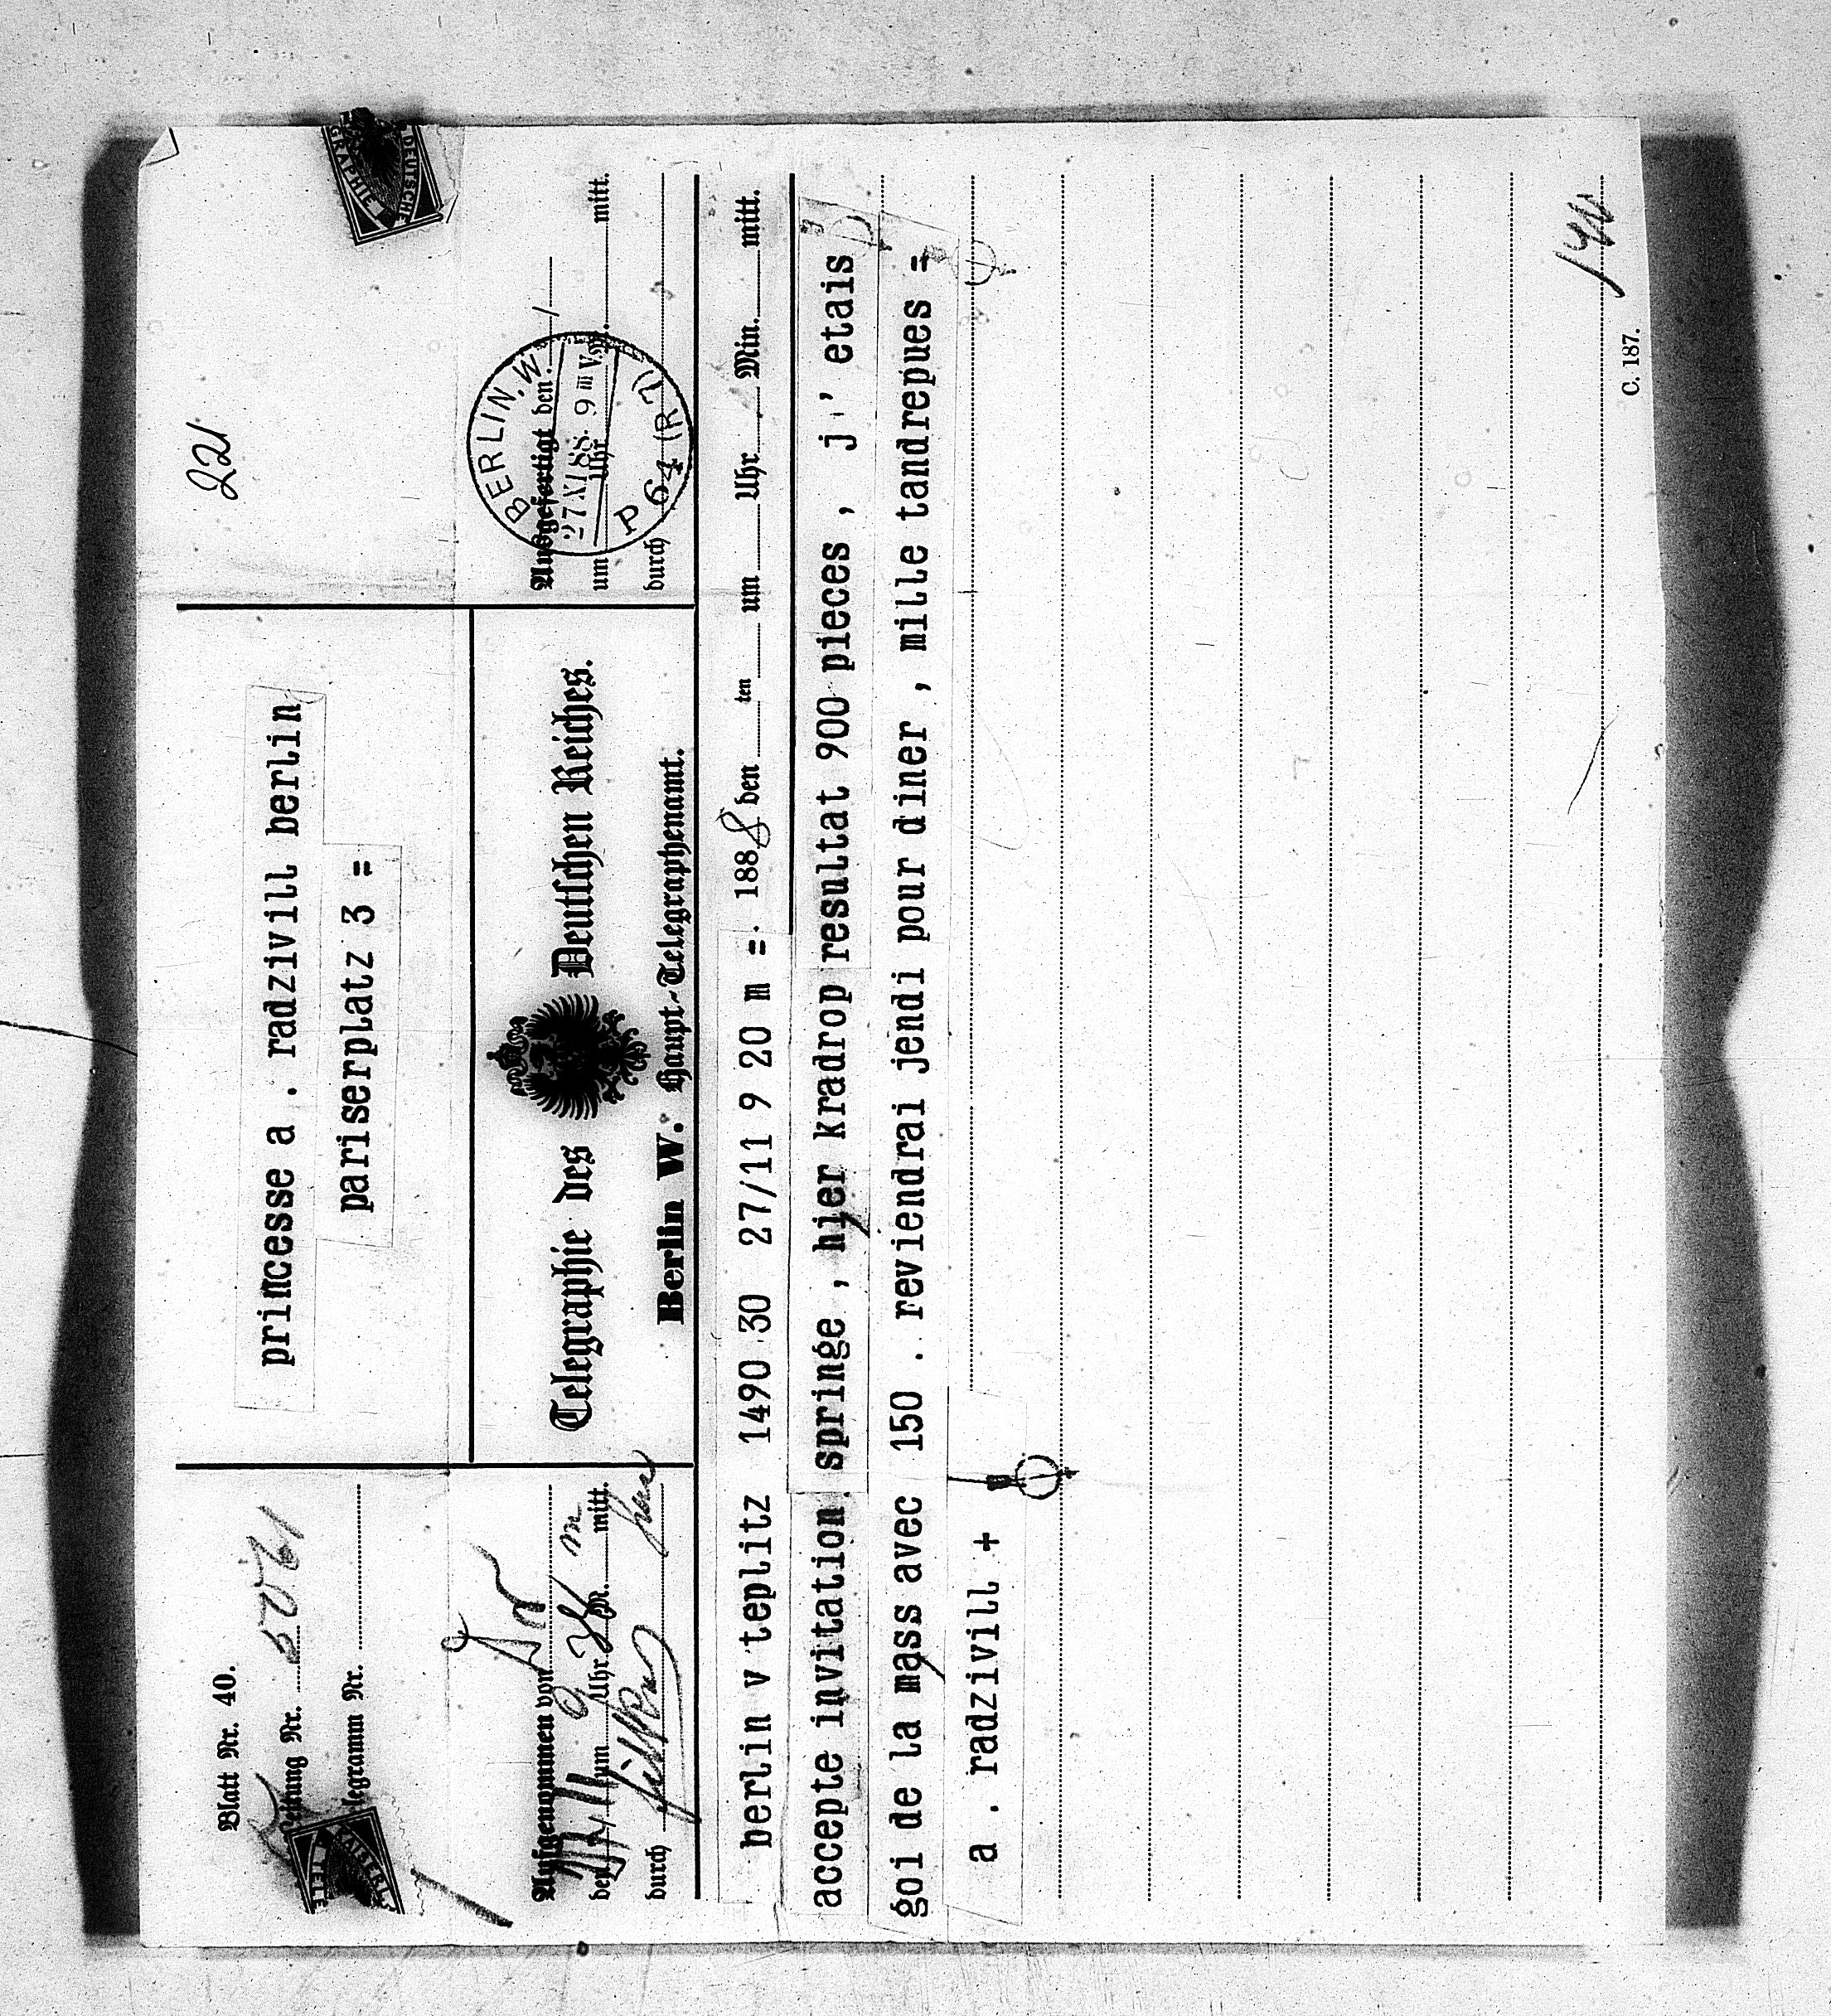 221
Blatt Nr. 40.
Leitung Nr. 5061
Telegramm Nr.
princesse a . radzivill berlin
pariserplatz 3 =
Aufgenommen von
den um Uhr M. mitt.
durch
Telegraphie des Deutschen Reiches.
Berlin W. Haupt-Telegraphenamt.
Ausgefertigt den
um Uhr M. mitt.
durch
BERLIN, W.
27 XI 88. 9 V.
P 64 (R 7)
berlin v teplitz 1490 30 27/11 9 20 m = 1888 den ten um Uhr Min. mitt.
accepte invitation springe , hier kradrop resultat 900 pieces , j' etais
goi de la mass avec 150 . reviendrai jendi pour diner , mille tandrepues =
a . radzivill +
C. 187.